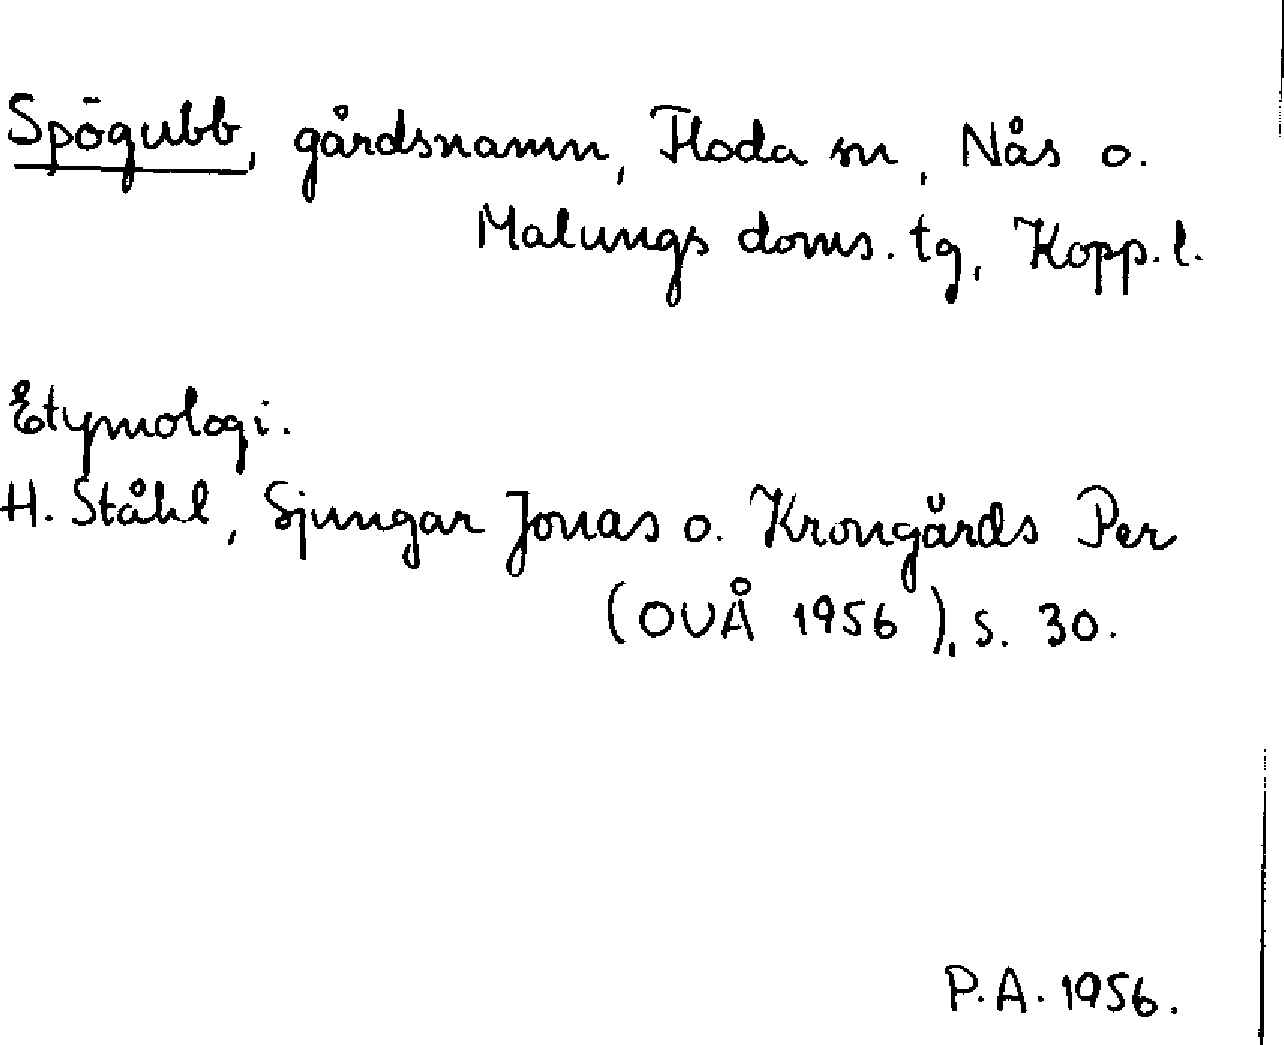 Spögubb, gårdsnamn, Floda sn, Nås o.
Malungs doms. tg, Kopp. l.
Etymologi.
H. Ståhl, Sjungar Jonas o. Krongårds Per
(OUÅ 1956), s. 30.
P.A. 1956.